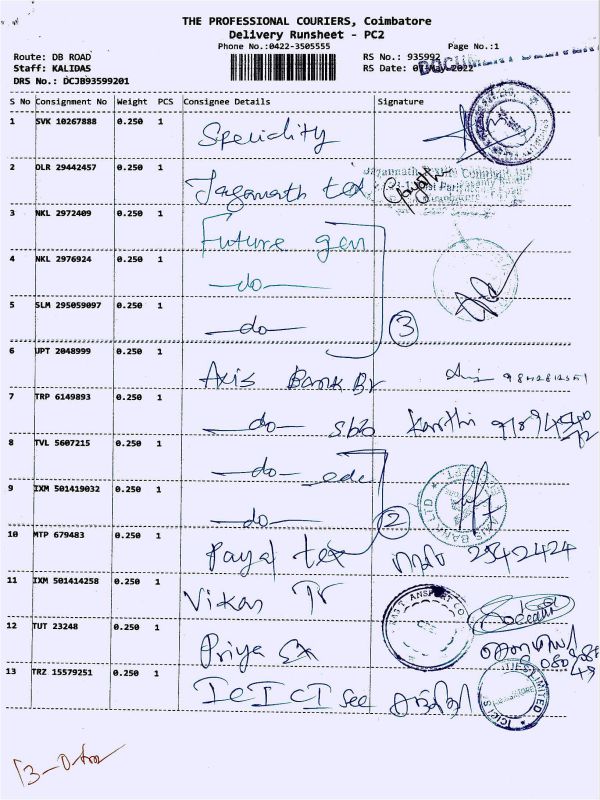 THE PROFESSIONAL COURIERS, Coimbatore
Delivery Runsheet - PC2
Phone No.:0422-3505555
Page No.:1
Route: DB ROAD
RS No.: 935992
Staff: KALIDAS
RS Date: 07-May-2022
DRS No.: DCJB93599201
S No Consignment No Weight PCS Consignee Details Signature
1 SVK 10267888 0.250 1 Speciality
2 OLR 29442457 0.250 1 Jaganath tex
3 NKL 2972409 0.250 1 Future gen
4 NKL 2976924 0.250 1 -do-
5 SLM 295059097 0.250 1 -do- 3
6 UPT 2048999 0.250 1 Axis Bank Br
7 TRP 6149893 0.250 1 -do- sbb Karthi
8 TVL 5607215 0.250 1 -do-
9 IXM 501419032 0.250 1 -do- 2
10 MTP 679483 0.250 1 Payal tex 2542424
11 IXM 501414258 0.250 1 Vikas Tr
12 TUT 23248 0.250 1 Priya Ex
13 TRZ 15579251 0.250 1 ICICI sec